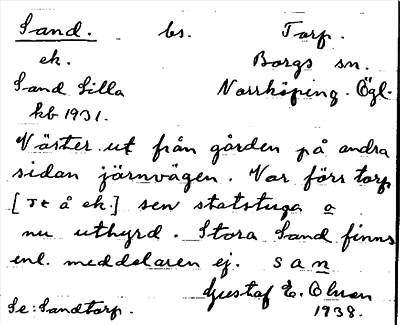 Sand. bs. Torp.
ek. Borgs sn.
Sand Lilla Norrköping. Ögl.
kb 1931.
Väster ut från gården på andra
sidan järnvägen. Var förr torp
[ å ek.] sen statstuga o
nu uthyrd. Stora Sand finns
enl. meddelaren ej. san
Gustaf E. Olsson
Se: Sandtorp. 1938.